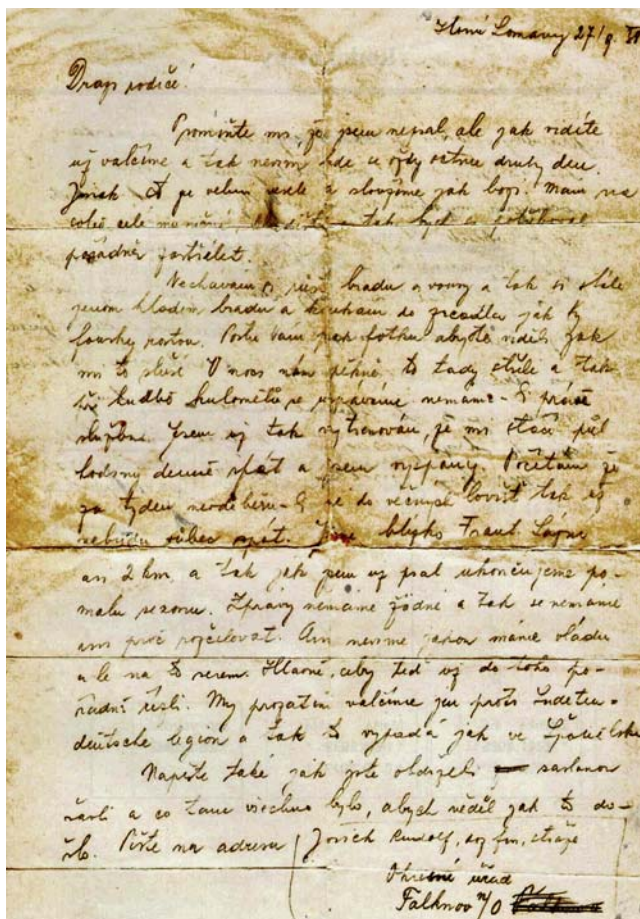 Horní Lomany 27/9.
Drazí rodiče!
Promiňte mi, že jsem nepsal, ale jak vidíte
už válčíme a tak nevím, kde se octnu druhý den.
Jinak je velmi veselo a sloužíme jak bozi. Mám na
sobě celé
pořádně
Nechávám si růst bradu a vousy a tak si stále
jenom hladím bradu a koukám do zrcadla jak ty
fousky rostou. Pošlu Vám pak fotku abyste viděli jak
mi to sluší. V noci nám pěkně to tady střílí a tak
při hudbě kulometů se
službu. Jsem už tak vytrénován, že mi stačí půl
hodiny denně spát a jsem vyspaný. Počítám že
za týden neodeberu-li se do věčných lovišť tak už
nebudu vůbec spát. Jsme blízko Frant. Lázní
asi 2 km, a tak jak jsem už psal ukončujeme po-
malu sezonu. Zprávy nemáme žádné a tak se nemáme
ani proč rozčilovat. Ani nevíme jakou máme vládu
ale na to serem. Hlavně, aby teď už do toho po-
řádně řízli. My prozatím válčíme jen proti Sudeten-
deutsche legion a tak to vypadá jak ve Španělsku
Napište také jak jste obdrželi
a co tam všechno bylo, abych věděl jak to do-
šlo. Pište na adresu Jorich Rudolf, fin. stráže
Okresní úřad
Falknov n/O